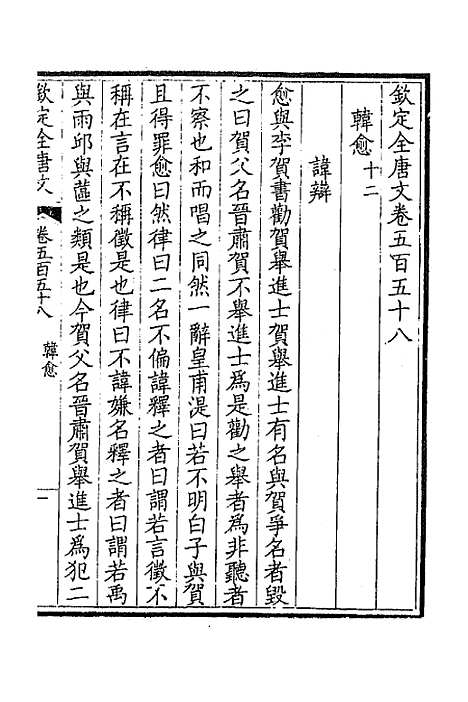 欽定全唐文卷五百五十八
韓愈十二
諱辯
愈與李賀書勸賀舉進士賀舉進士有名與賀爭名者毀
之曰賀父名晉肅賀不舉進士爲是勸之舉者爲非聽者
不察也和而唱之同然一辭皇甫湜曰若不明白子與賀
且得罪愈曰然律曰二名不偏諱釋之者曰謂若言徵不
稱在言在不稱徵是也律曰不諱嫌名釋之者曰謂若禹
與雨邱與蓲之類是也今賀父名晉肅賀舉進士爲犯二
欽定全唐文
卷五百五十八
韓愈
一